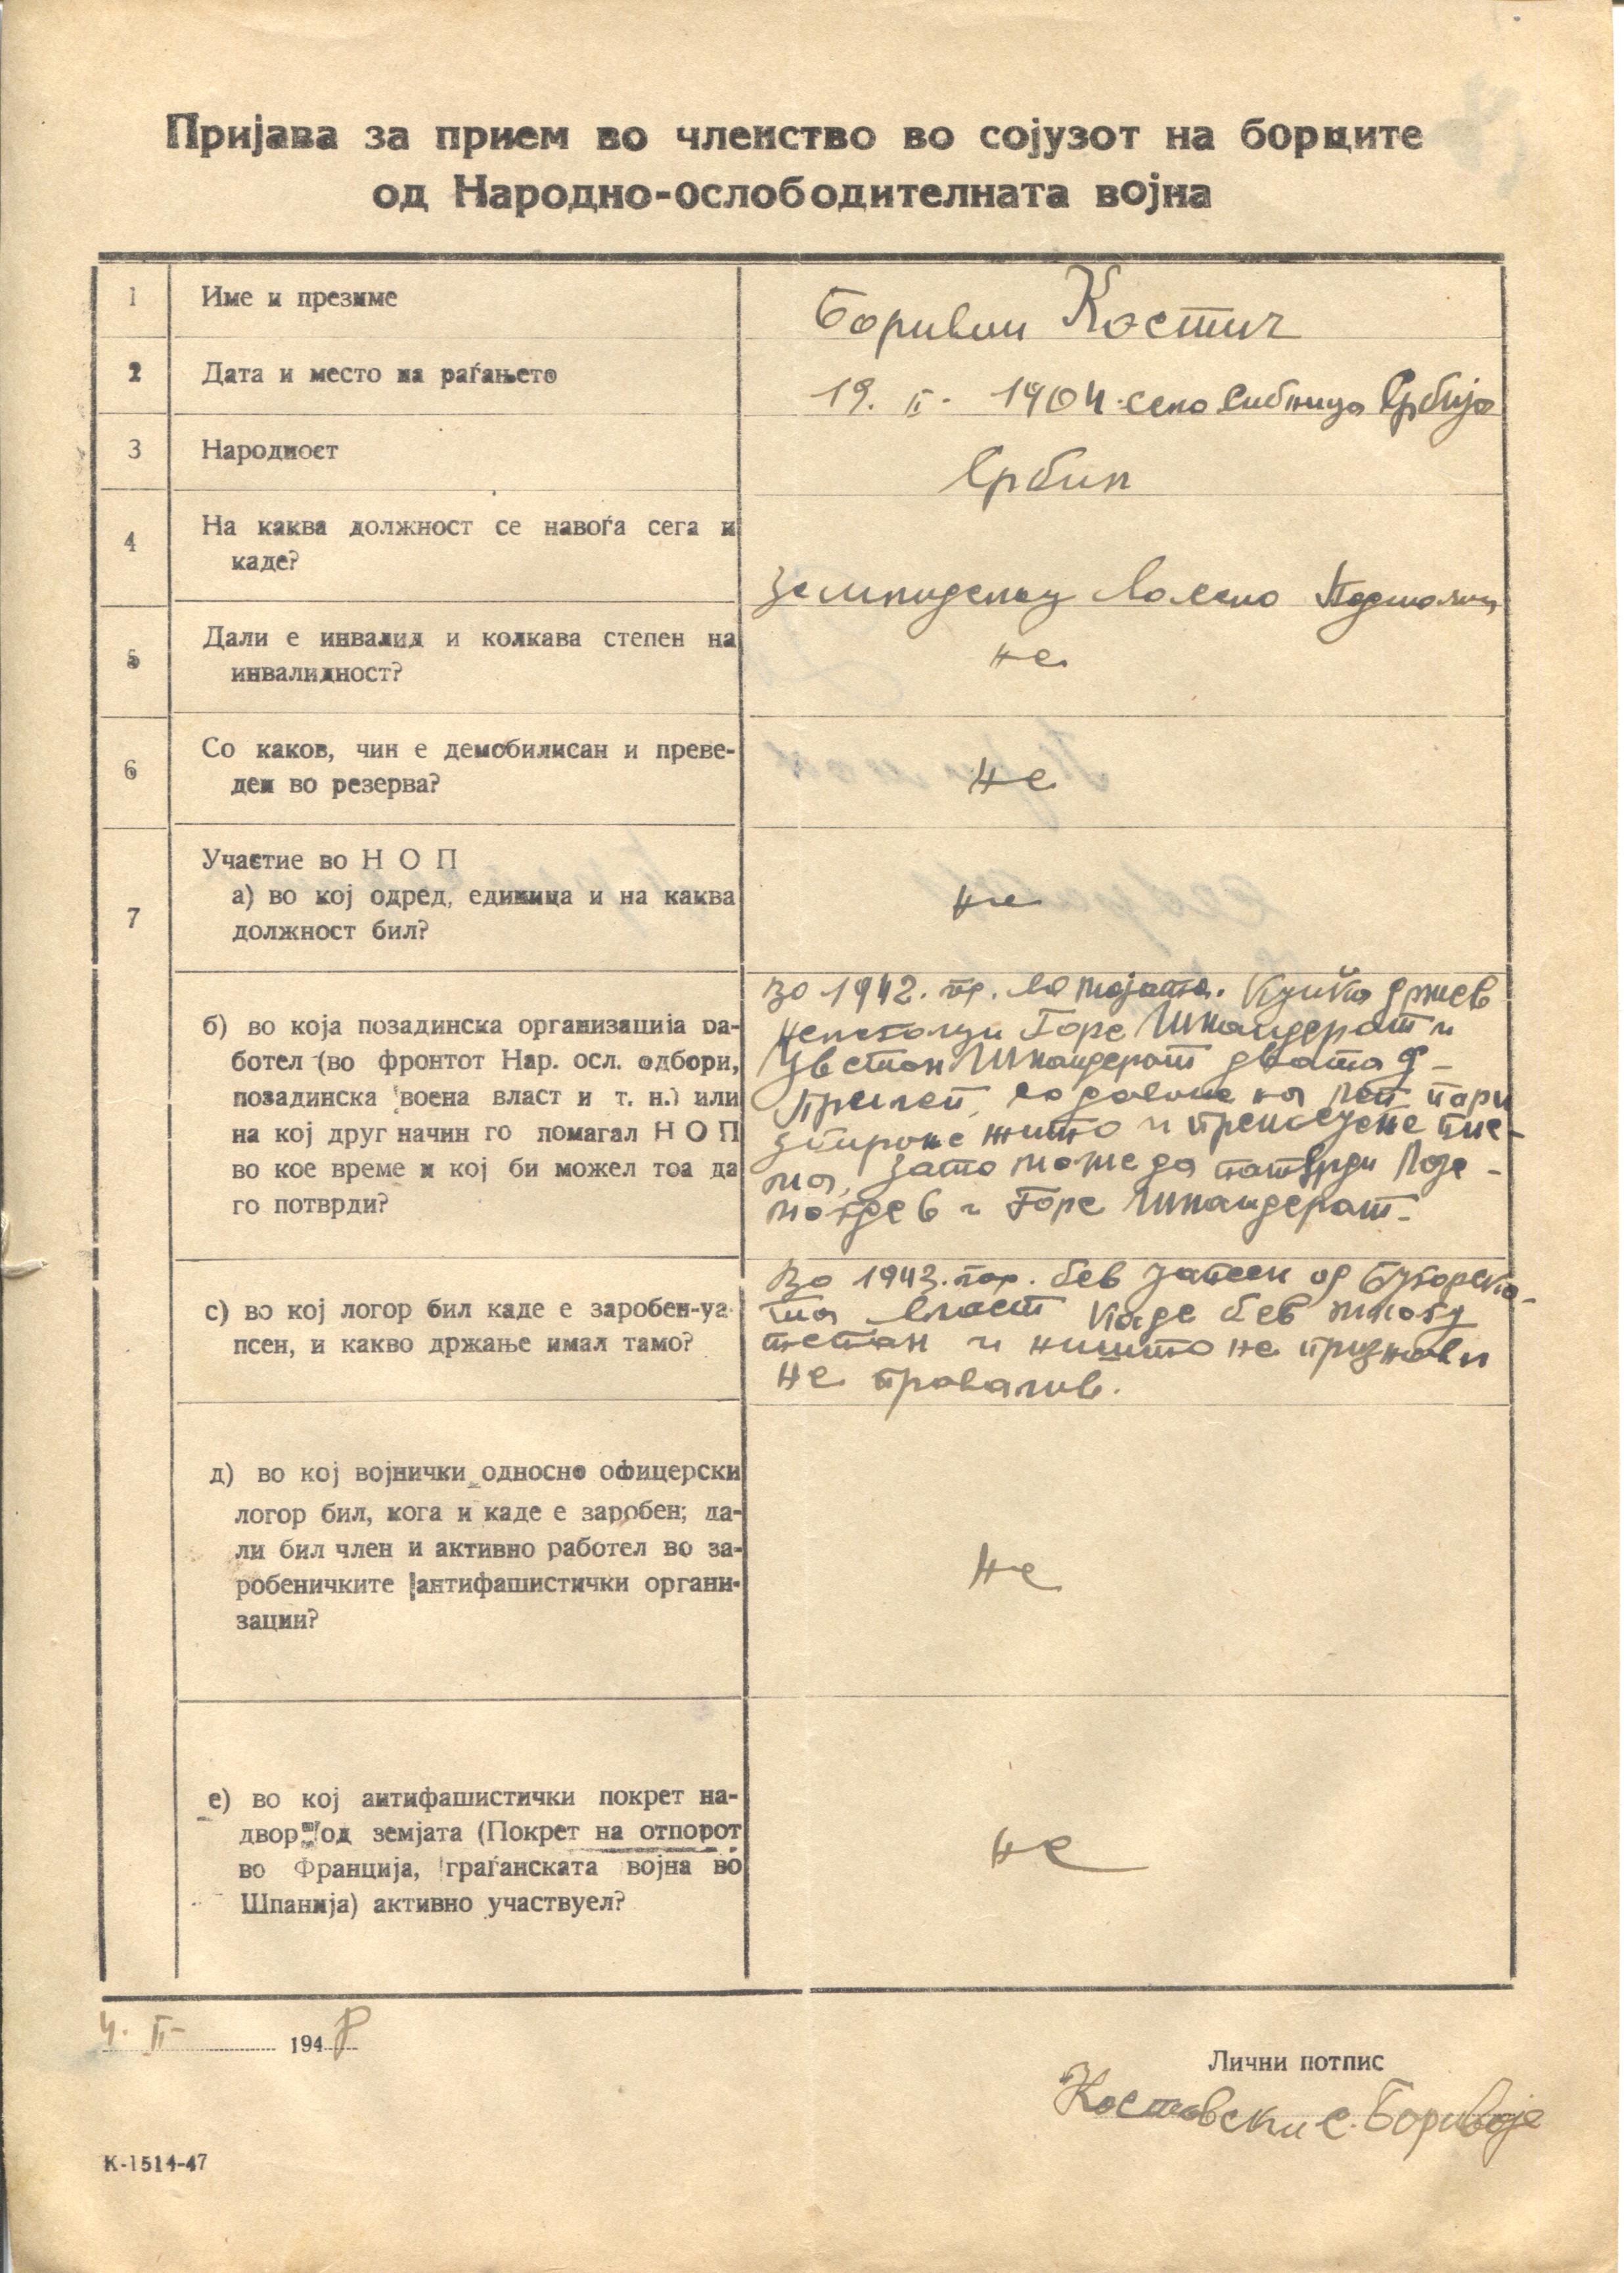 Пријава за прием во членство во сојузот на борците
од Народно-ослободителната војна
1 Име и презиме
Боривои Костич
2 Дата и место на раѓањето
19. II. 1904 село Сибница Србија
3 Народност
Србин
4 На каква должност се навоѓа сега и
каде?
во село
5 Дали е инвалид и колкава степен на
инвалидност?
не
6 Со каков, чин е демобилисан и преве-
ден во резерва?
не
7 Участие во Н О П
а) во кој одред, единица и на каква
должност бил?
не
б) во која позадинска организација ра-
ботел (во фронтот Нар. осл. одбори,
позадинска воена власт и т. н.) или
на кој друг начин го помагал Н О П
во кое време и кој би можел тоа да
го потврди?
Во 1942. во мојата. Куќа држев
Горе Шкандерот и
Цветан Шкандерот двата д-
Прилеп, пари
жито и
зато може да потврди
и Горе Шкандерот.
с) во кој логор бил каде е заробен-уа-
псен, и какво држање имал тамо?
Во 1943. год. бев запсен од Бугорско-
та власт каде бев многу
тепан и ништо не признав и
не провалив.
д) во кој војнички односно офицерски
логор бил, кога и каде е заробен; да-
ли бил член и активно работел во за-
робеничките антифашистички органи-
зации?
не
е) во кој антифашистички покрет на-
двор од земјата (Покрет на отпорот
во Франција, граѓанската војна во
Шпанија) активно участвуел?
не
4. II- 1948
Лични потпис
Костовски С. Боривоје
К-1514-47